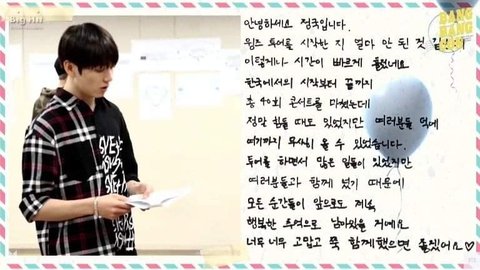 Big Hit
BANG
BANG
안녕하세요 정국입니다.
윙즈 투어를 시작한 지 얼마 안 된 것
이렇게나 시간이 빠르게 흘렀네요
한국에서의 시작부터 끝까지
총 40회 콘서트를 마쳤는데
정말 힘들 때도 있었지만 여러분들 덕에
여기까지 무사히 올 수 있었습니다.
투어를 하면서 많은 일들이 있었지만
여러분들과 함께 했기 때문에
모든 순간들이 앞으로도 저의
행복한 추억으로 남아있을 거예요
너무 너무 고맙고 쭉 함께했으면 좋겠어요♡